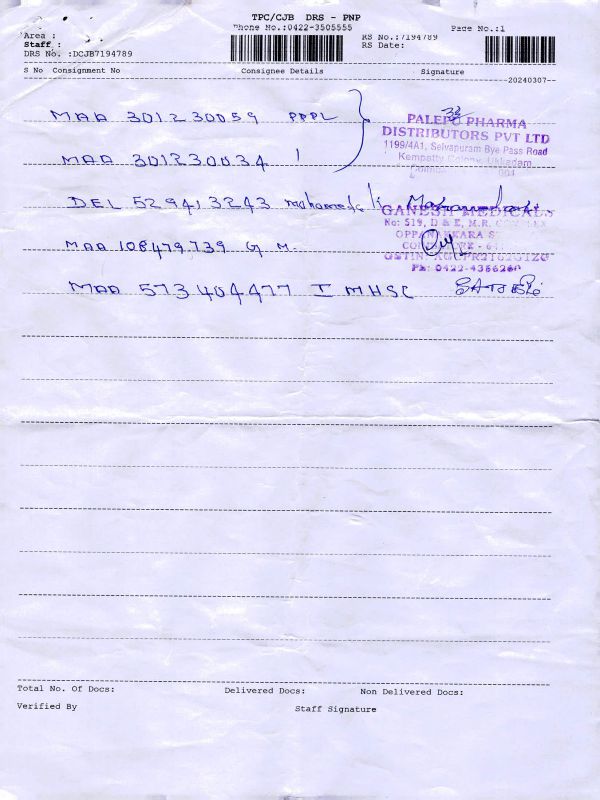 TPC/CJB DRS - PNP
Phone No.:0422-3505555
Page No.:1
Area :
Staff :
DRS No. :DCJB7194789
RS No.:7194789
RS Date:
S No Consignment No Consignee Details Signature
20240307
MAA 301230059 PPPL
PALEPU PHARMA
DISTRIBUTORS PVT LTD
1199/4A1, Selvapuram Bye Pass Road
Kempatty Colony, Ukkadam
004
MAA 301230034
DEL 529413243
GANESH MEDICALS
No: 519, D & E, M.R.
MAA 108479739 G M.
Ph: 0422-436626
MAA 573404477 I MHSC
Total No. Of Docs: Delivered Docs: Non Delivered Docs:
Verified By Staff Signature